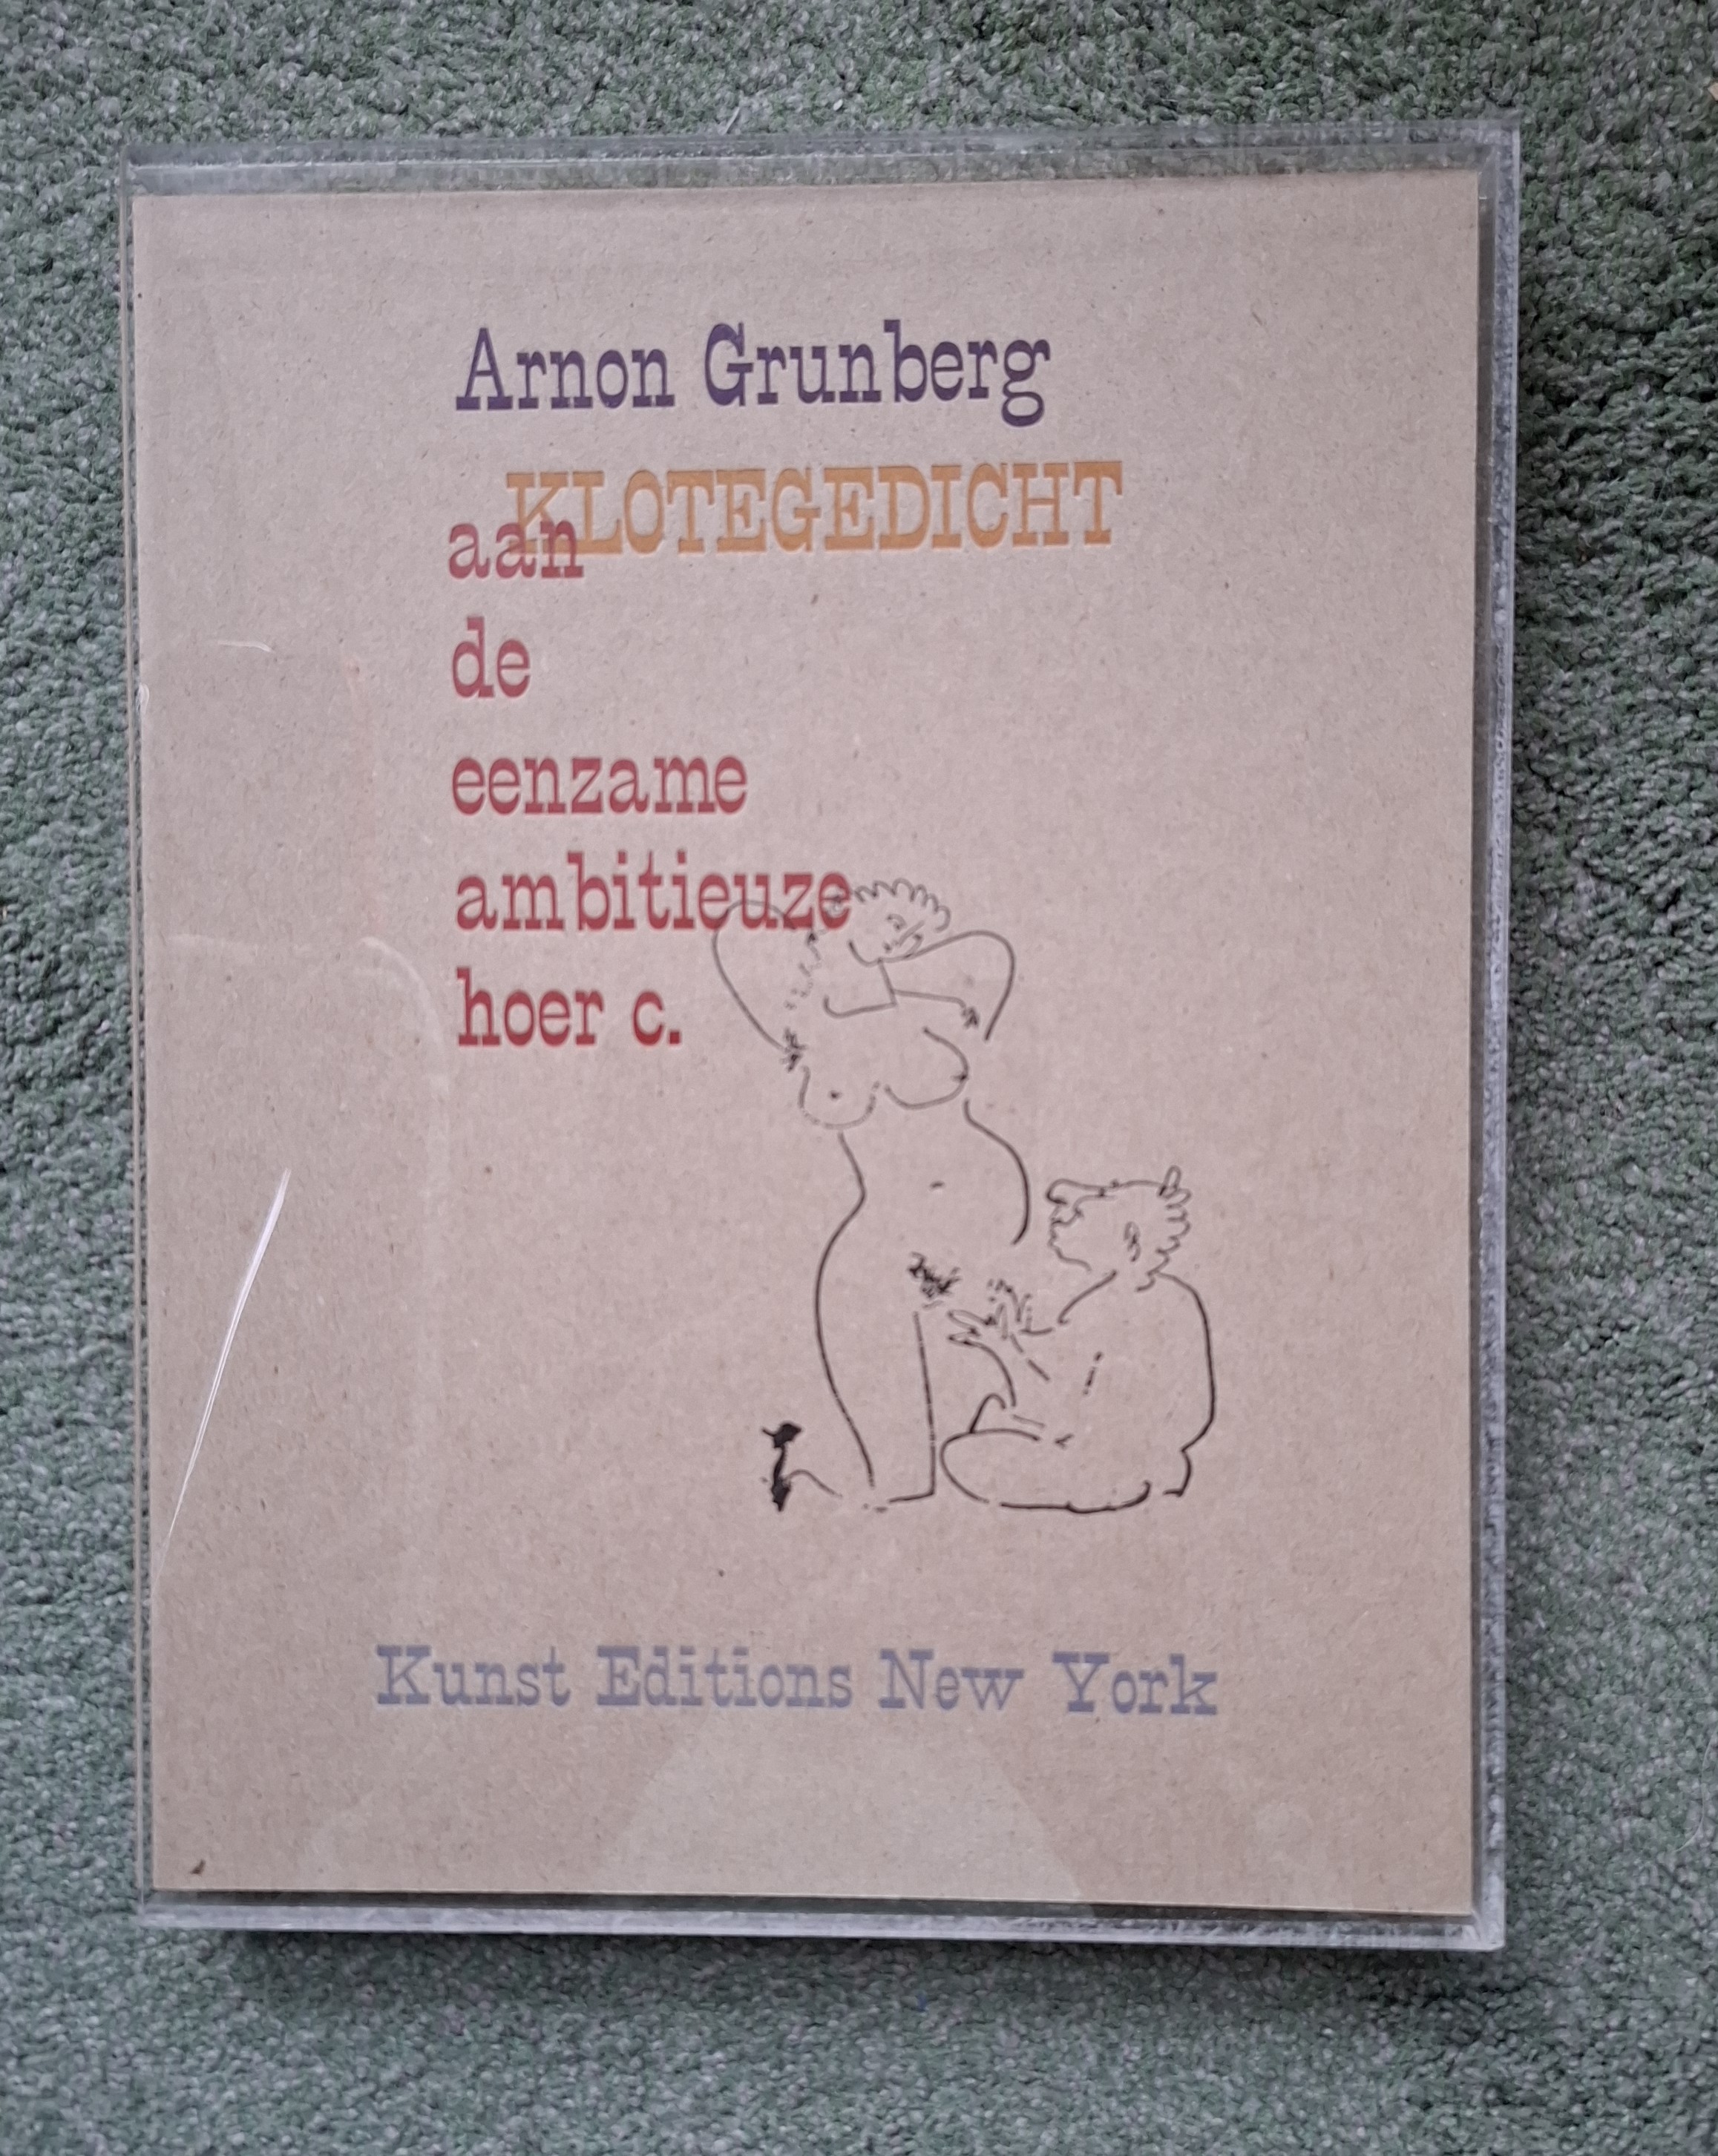 Arnon Grunberg
KLOTEGEDICHT
aan
de
eenzame
ambitieuze
hoer c.
Kunst Editions New York